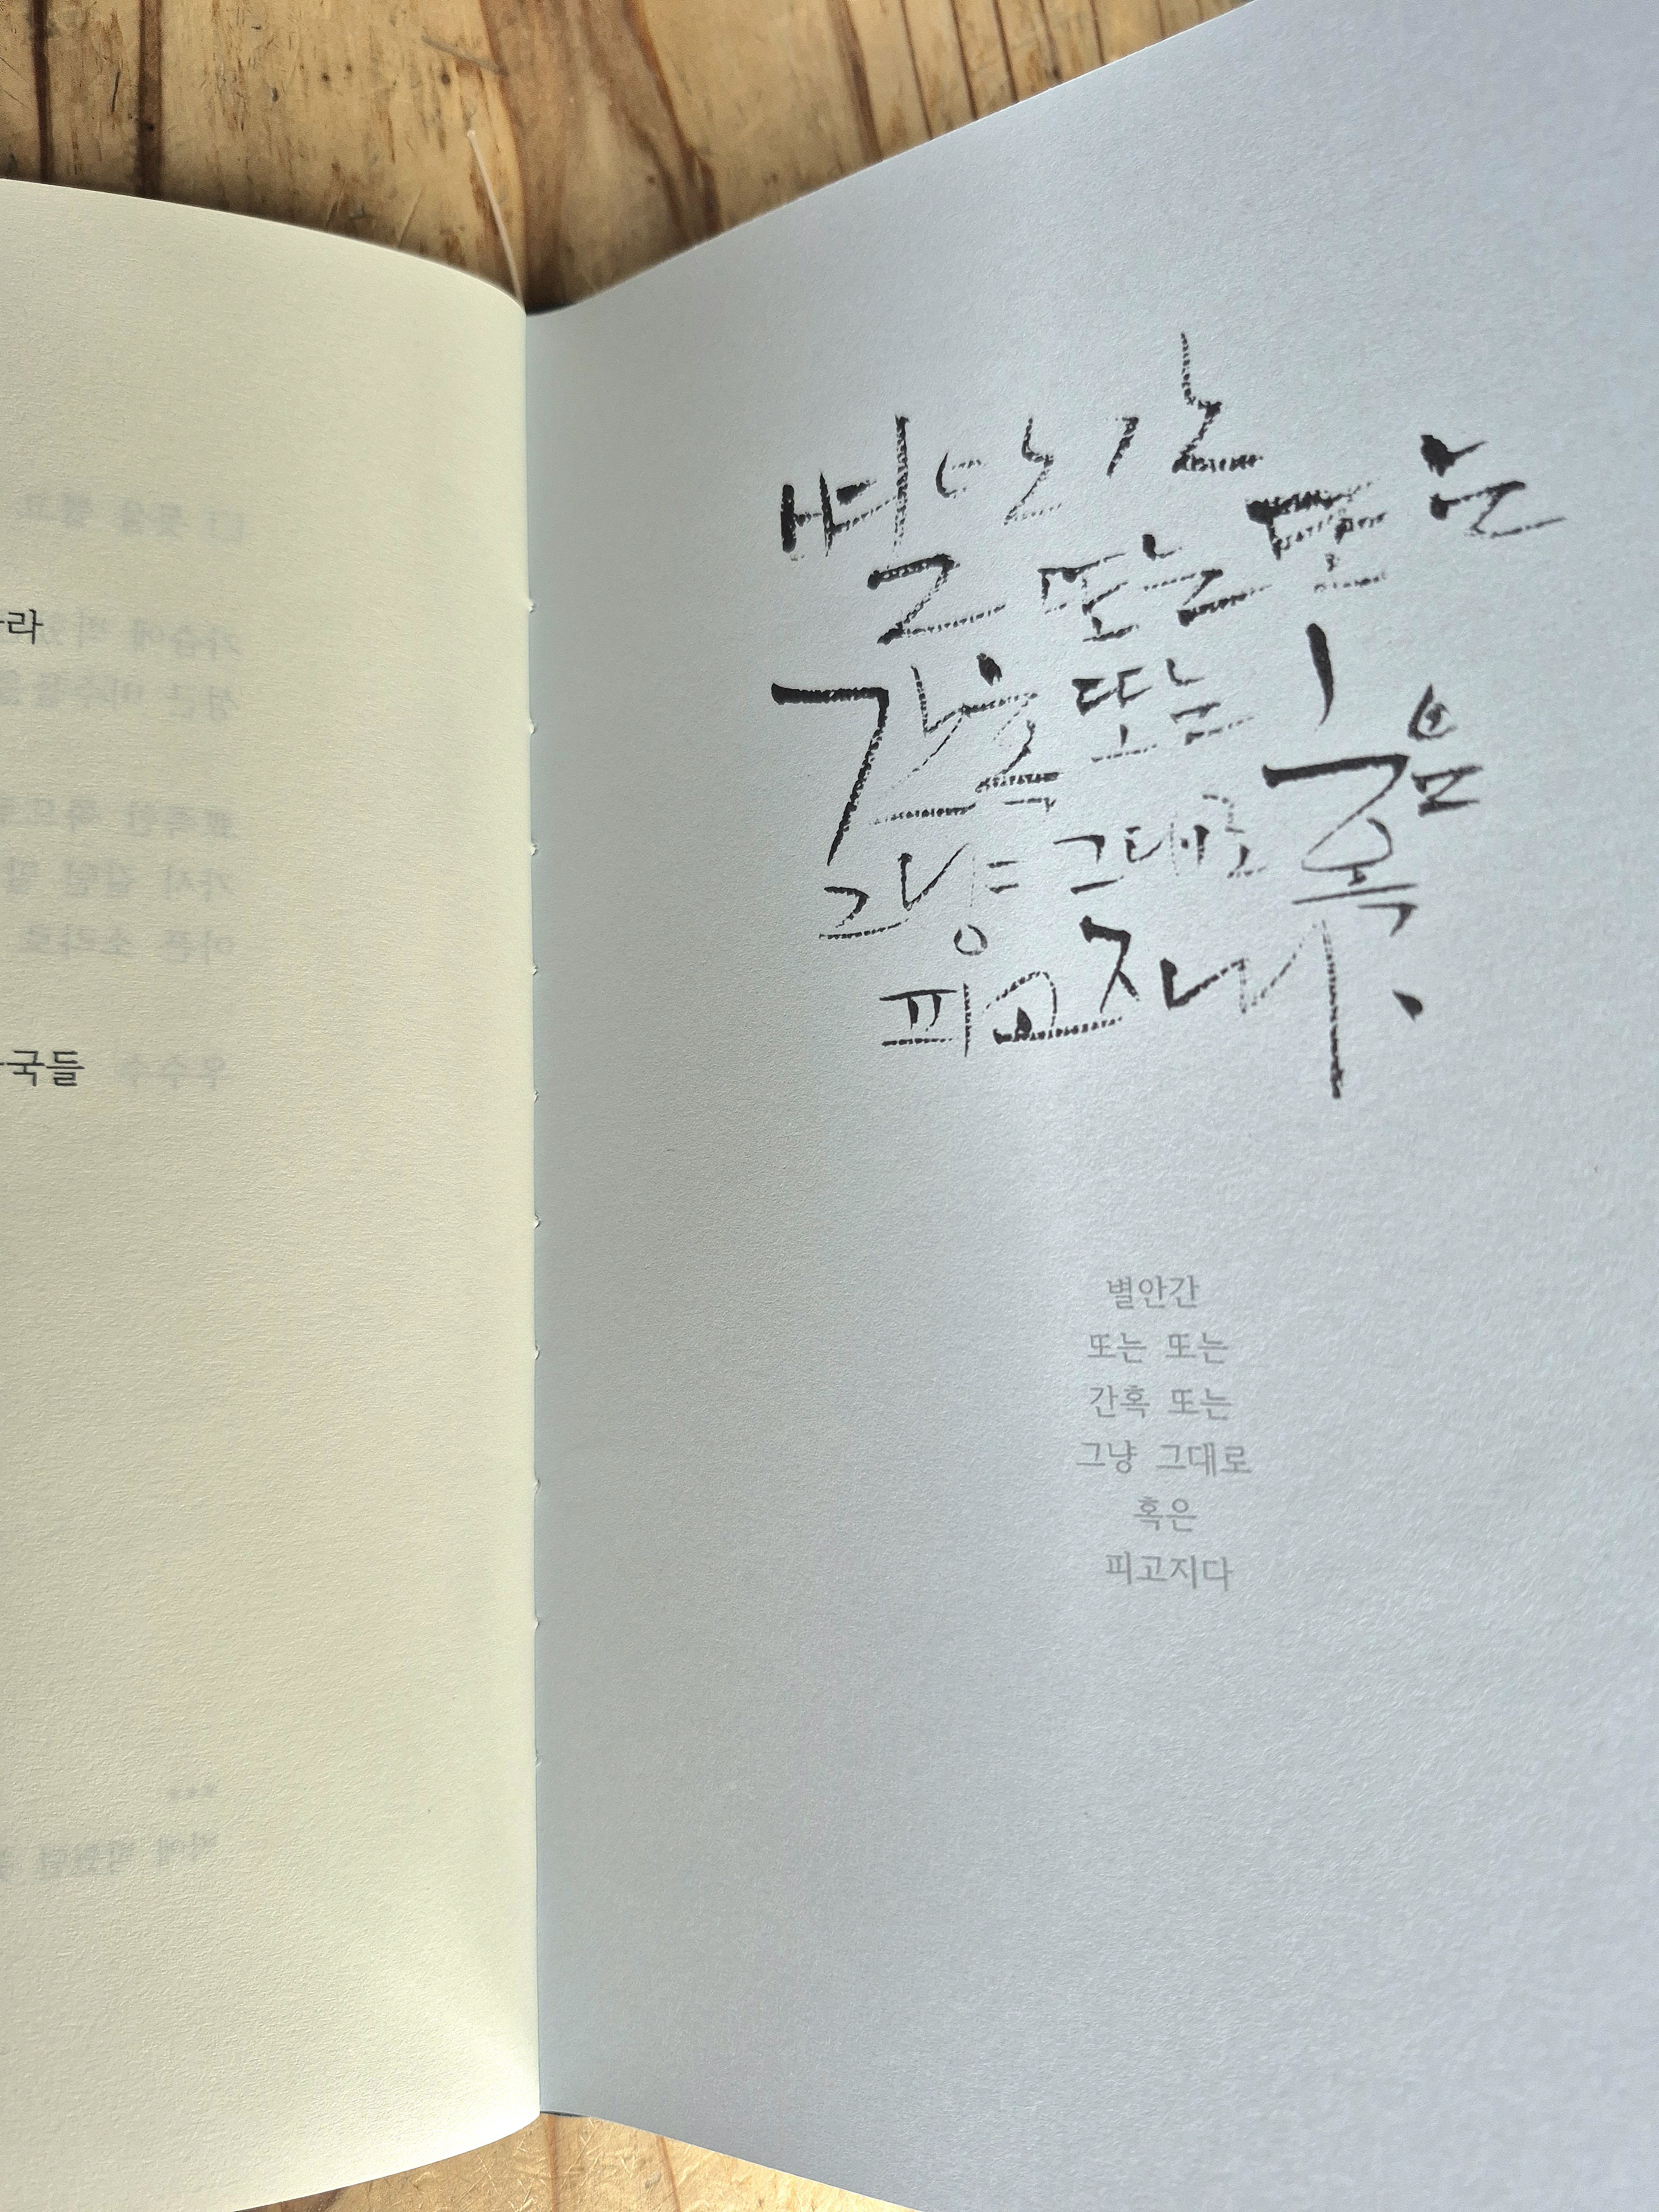 라
국들
별안간
또는 또는
간혹 또는
그냥 그대로
혹은
피고지다
별안간
또는 또는
간혹 또는
그냥 그대로
혹은
피고지다